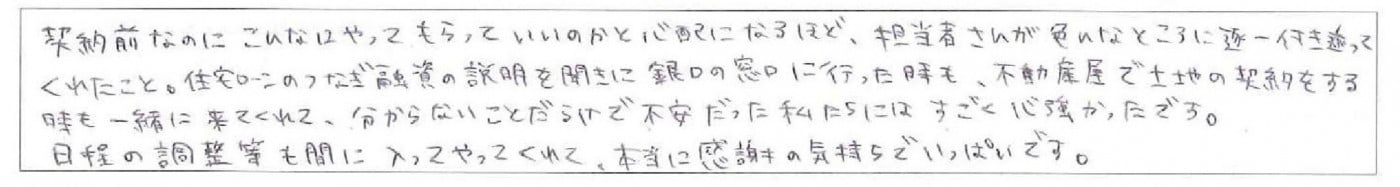 契約前なのにこんなにやってもらっていいのかと心配になるほど、担当者さんが色んなところに逐一付き添って
くれたこと。住宅ローンのつなぎ融資の説明を聞きに銀口の窓口に行った時も、不動産屋で土地の契約をする
時も一緒に来てくれて、分からないことだらけで不安だった私たちにはすごく心強かったです。
日程の調整等も間に入ってやってくれて、本当に感謝の気持ちでいっぱいです。